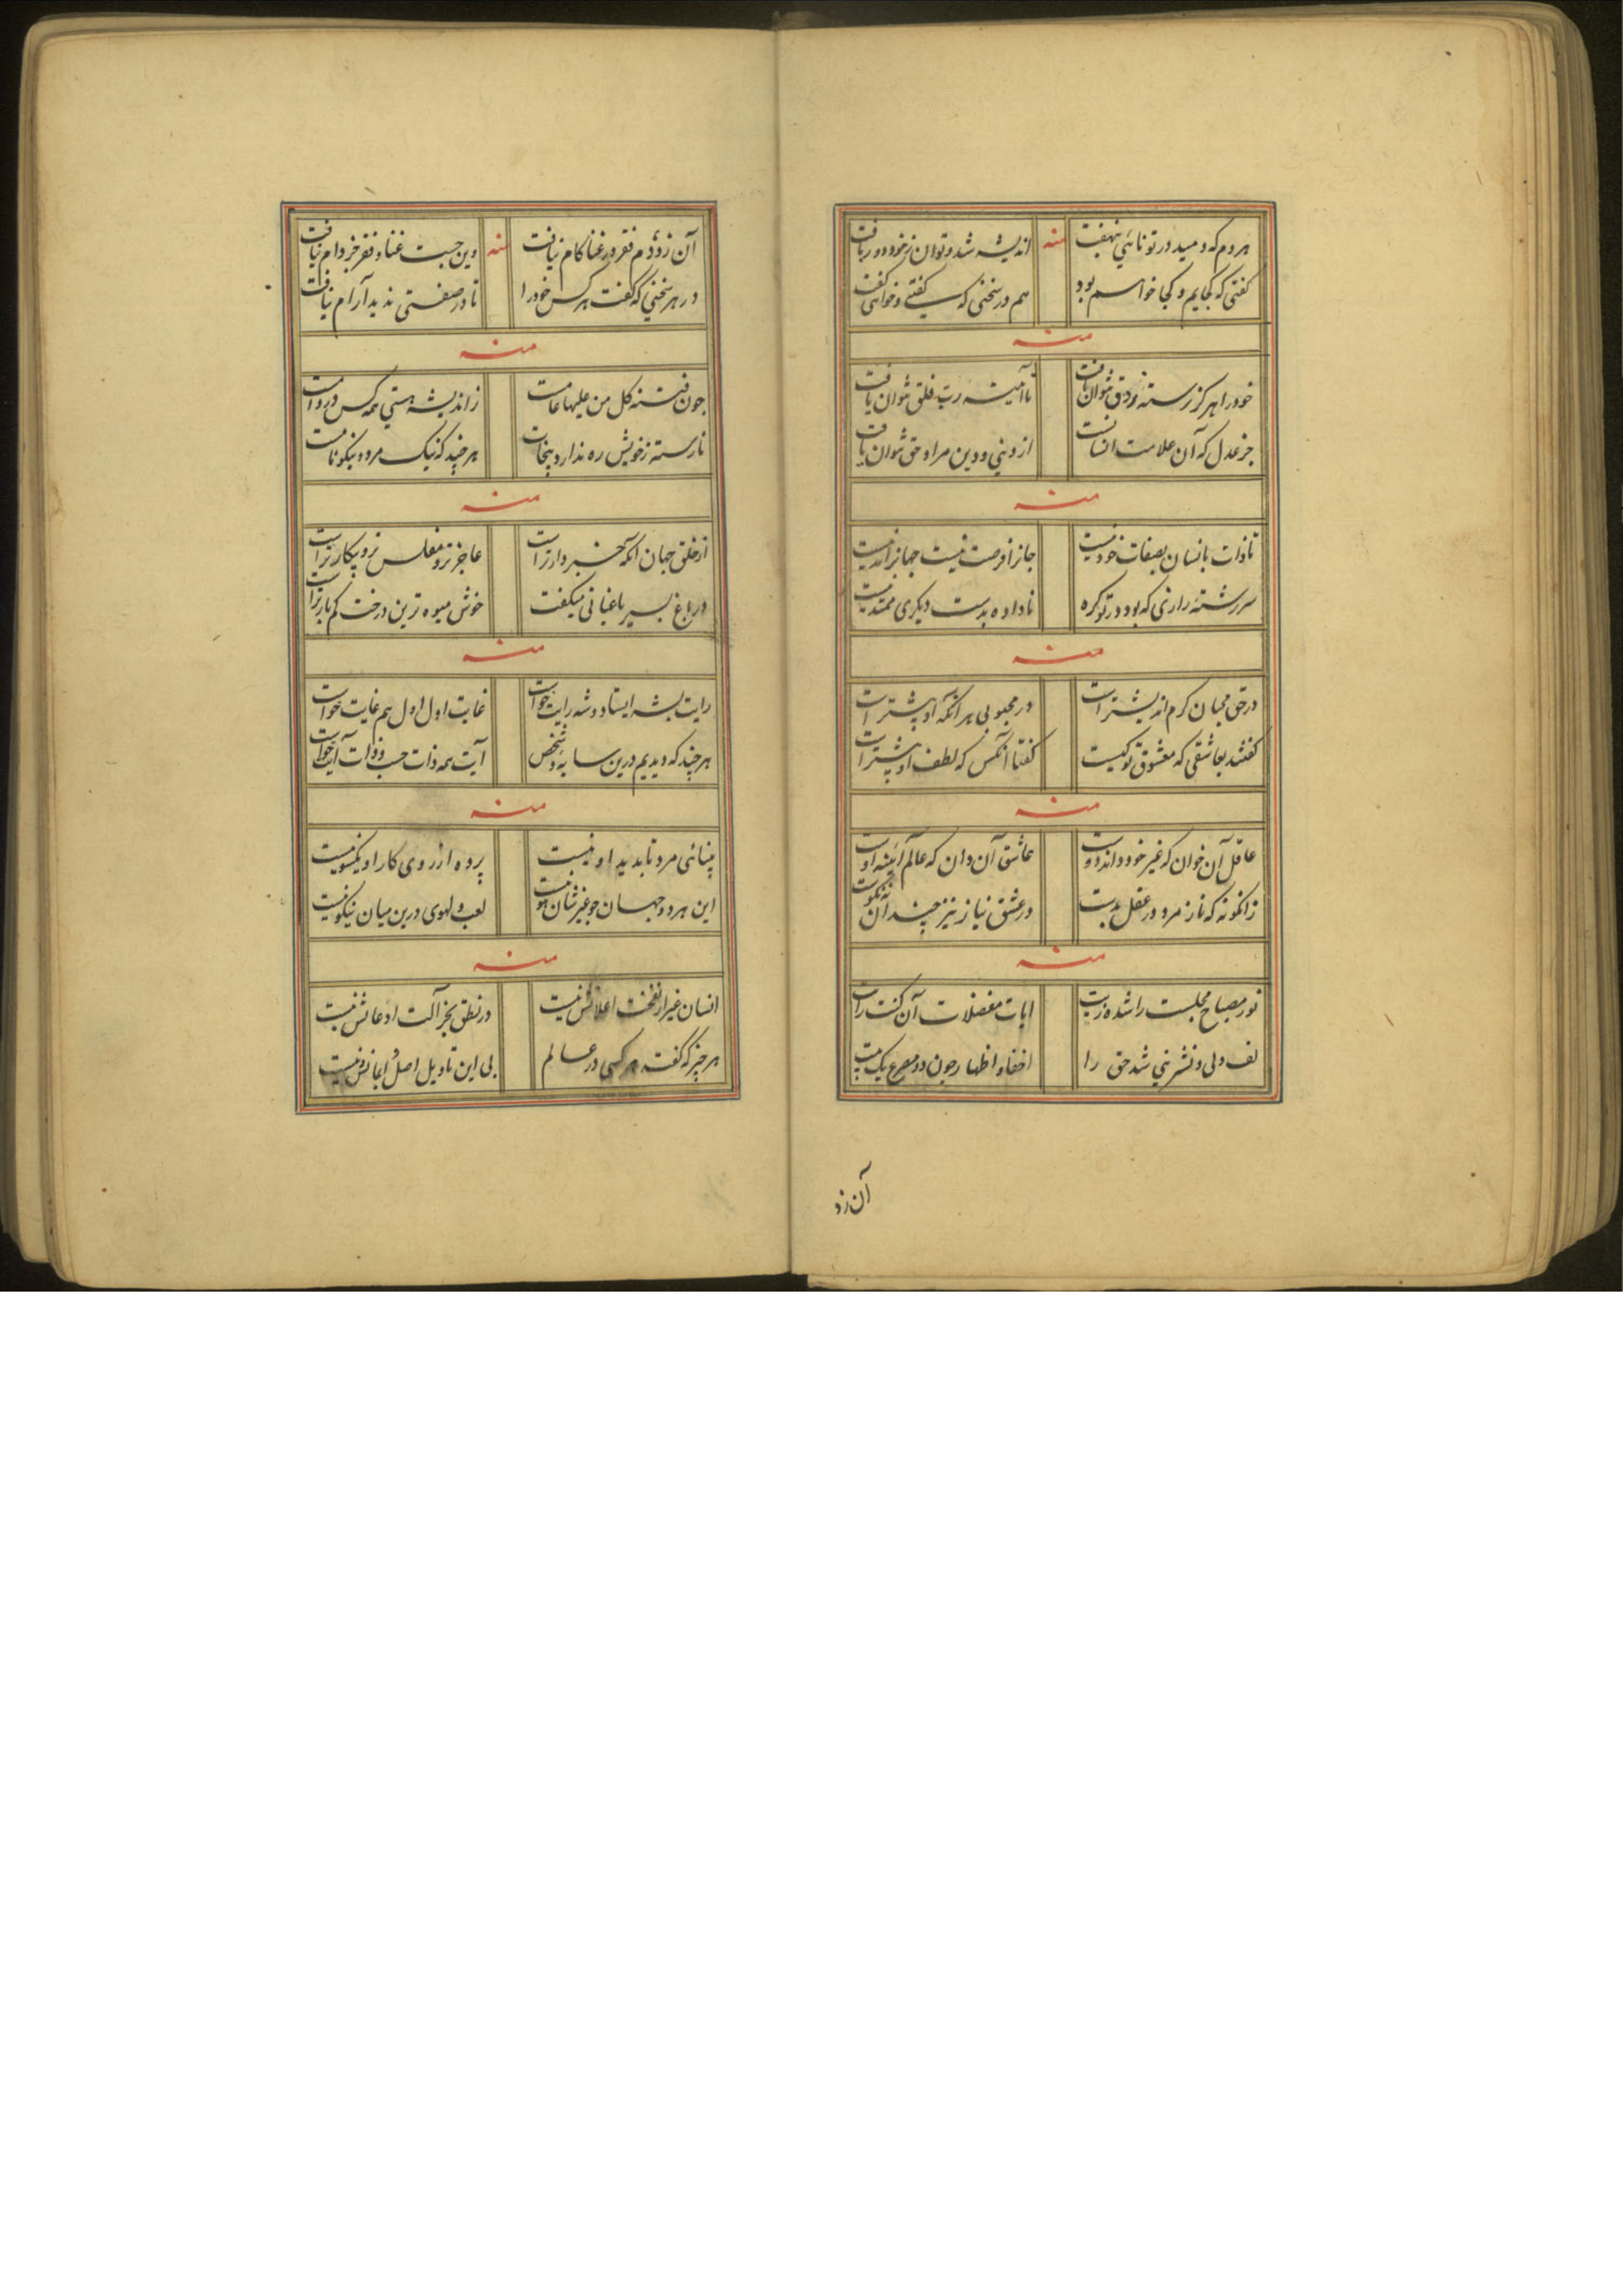 هر دم که دمید در تو نائی بنهفت
منه
اندیشه شد و توان ز خود دور
گفتی که کجایم و کجا خواهم بود
هم در سخنی که گفتی و خواهی گفت
منه
خود را هرگز رسته ز دق نتوان یافت
تا آمیته رب فلق نتوان یافت
جز عدل که آن علامت انسانست
از دنیی و دین مراد حق نتوان یافت
منه
تا ذات بانسان بصفات خود نیست
جانرا فرصت نیست جهانرا مد نیست
سررشته رازی که بود در تو گره
ناداده بدست دیگری ممتد نیست
منه
در حق محبان کرم اندیشتر است
در محبوبی هر آنکه او پیشتر است
گفتند بعاشقی که معشوق تو کیست
گفتا آنکس که لطف او بیشتر است
منه
عاقل آن خوان که غیر خود داند دوست
عاشق آن دان که عالم آئینه اوست
زانگونه که ناز مرد در عقل بدست
در عشق نیاز نیز چندان نیکوست
منه
نور مصباح مجلست را شده زیت
ابیات مفصلات آن کنت
لف ولی و نشر نبی شد حق را
اخفا و اظهار چون دو مصرع یک بیت
آن زد
آن زد دم فقر و در غنا کام نیافت
منه
وین جست غنا و فقر جز دام نیافت
در هر سخنی که گفت هر کس خود را
تا در صفتی ندید آرام نیافت
منه
چون فتنه کل من علیها عامست
ز اندیشه هستی همه کس در وامست
نارسته ز خویش ره ندارد بنجات
هر چند که نیک مرد و نیکو نامست
منه
از خلق جهان آنکه خبردارتر است
عاجزتر و مفلس تر و بیکارتر است
در باغ بسیر باغبانی میگفت
خوش میوه ترین درخت کم بارتر است
منه
رایت بشه ایستاد و شه رایت خواست
غایت اول اول هم غایت خواست
هر چند که دیدیم درین سایه و شخص
آیت همه ذات جست و ذات آیت خواست
منه
بینائی مرد تا بدید او نیست
پرده از روی کار او یکسو نیست
این هر دو جهان چو غیر شان هو نیست
لعب و لهوی درین میان نیکو نیست
منه
انسان غیر از نفخت اعلانش نیست
در نطق بجز آلت ادعانش نیست
هر چیز که گفت هر کسی در عالم
بی این تاویل اصل ایمانش نیست